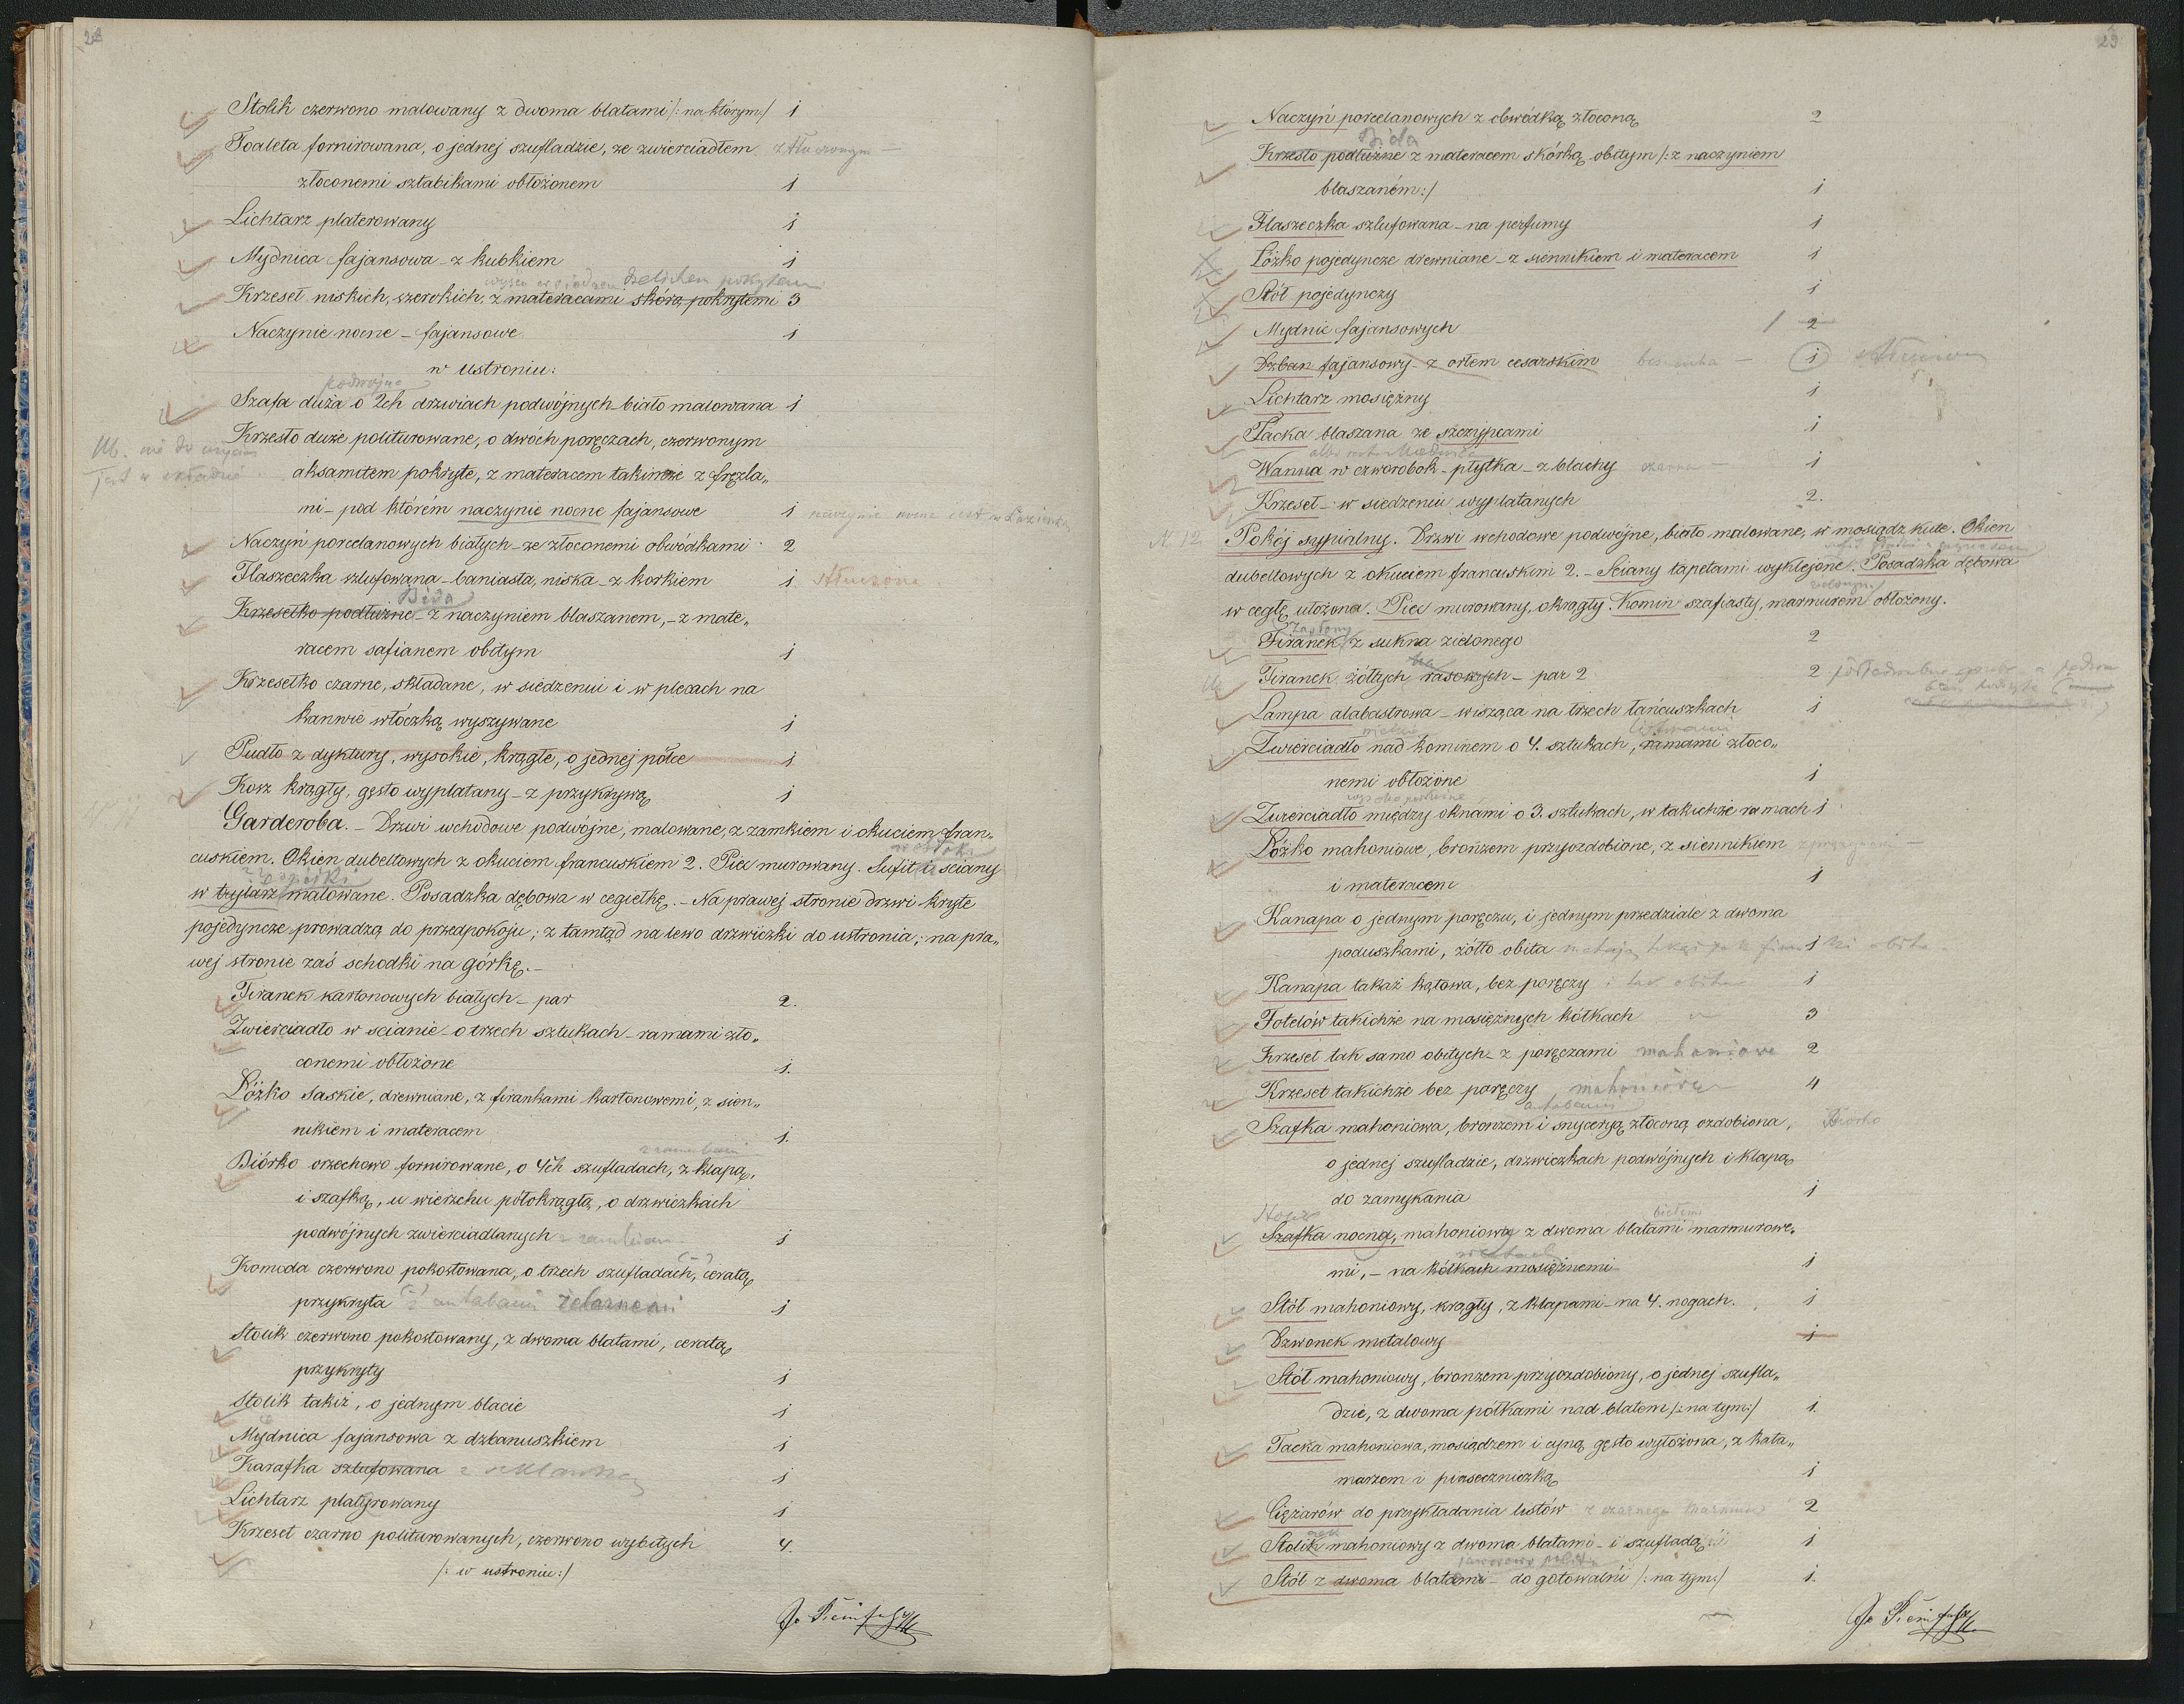 Stolik czerwono malowany z dwoma blatami /: na którym :/ 1
Toaleta fornirowana, o jednej szufladzie, ze zwierciadłem z tłuczonym —
złoconemi sztabikami obłożonem 1
Lichtarz platerowany 1
Mydnica fajansowa – z kubkiem 1
pokrytemi
Krzeseł niskich, szerokich, z materacami skórą pokrytemi 3
Naczynie nocne – fajansowe 1
w Ustroniu:
podwójne
Szafa duża o 2ch drzwiach podwójnych – biało malowana 1
Krzesło duże politurowane, o dwóch poręczach, czerwonym
aksamitem pokryte, z materacem takimże z fręzla„
mi – pod którém naczynie nocne fajansowe 1 naczynie nocne jest w
Naczyń porcelanowych białych – ze złoconemi obwódkami 2
Flaszeczka szlufowana – baniasta, niska – z korkiem 1 stłuczona
Bida
Krzesełko podłużne – z naczyniem blaszanem, – z mate„
racem safianem obitym 1
Krzesełko czarne, składane, w siedzeniu i w plecach na
kanwie włóczką wyszywane 1
Pudło z dyktury, wysokie, krągłe, o jednej półce 1
Kosz krągły, gęsto wyplatany – z przykrywą 1
Garderoba. – Drzwi wchodowe podwójne, malowane, z zamkiem i okuciem fran„
cuskiem. Okien dubeltowych z okuciem francuskiem 2. Piec murowany. Sufit i ściany
w trylarz malowane. Posadzka dębowa w cegiełkę. – Na prawej stronie drzwi kryte
pojedyncze prowadzą do przedpokoju; z tamtąd na lewo drzwiczki do ustronia; na pra„
wej stronie zaś schodki na górkę. –
Firanek kartonowych białych – par 2.
Zwierciadło w scianie – o trzech sztukach – ramami zło„
conemi obłożone 1.
Łóżko saskie, drewniane, z firankami kartonowemi, z sien„
nikiem i materacem 1.
Biórko orzechowo fornirowane, o 4ch szufladach, z klapą,
i szafką, u wierzchu półokrągłą, o drzwiczkach
podwójnych zwierciadlanych 1
Komoda czerwono pokostowana, o trzech szufladach, ceratą
przykryta z antabami żelaznemi 1
Stolik czerwono pokostowany, z dwoma blatami, ceratą
przykryty 1
Stolik takiż, o jednym blacie 1
Mydnica fajansowa z dzbanuszkiem 1
Karafka szlufowana z szklanką 1
Lichtarz platerowany 1
Krzeseł czarno politurowanych, czerwono wybitych 4.
/: w ustroniu :/
23
Naczyń porcelanowych z obwódką złoconą 2
Bida
Krzesło podłużne z materacem skórką obitym /: z naczyniem
blaszaném :/ 1
Flaszeczka szlufowana – na perfumy 1
Łóżko pojedyncze drewniane – z siennikiem i materacem 1
Stół pojedynczy 1
Mydnic fajansowych 1 2
Dzban fajansowy – z orłem cesarskim bez ucha — 1
Lichtarz mosiężny 1
Tacka blaszana ze szczypcami 1
Wanna w czworobok – płytka – z blachy czarna — 1
Krzeseł – w siedzeniu wyplatanych 2.
N. 12 Pokój sypialny. Drzwi wchodowe podwójne, biało malowane, w mosiądz kute. Okien
dubeltowych z okuciem francuskim 2. – Sciany tapetami wyklejone. Posadzka dębowa
w cegłę ułożona. Piec murowany, okrągły. Komin szafiasty, marmurem obłożony.
Zasłony
Firanek z sukna zielonego 2
Firanek żółtych rasowych – par 2 2
Lampa alabastrowa – wisząca na trzech łańcuszkach 1
listwami
Zwierciadło nad kominem o 4. sztukach, ramami złoco„
nemi obłożone 1
Zwierciadło między oknami o 3. sztukach, w takichże ramach 1
Łóżko mahoniowe, bronzem przyozdobione, z siennikiem
i materacem 1
Kanapa o jednym poręczu, i jednym przedziale z dwoma
poduszkami, żółto obita 1
Kanapa takaż kątowa, bez poręczy i tak obita 1
Fotelów takichże na mosiężnych kółkach 3
Krzeseł tak samo obitych – z poręczami mahoniowe 2
Krzeseł takichże bez poręczy mahoniowe 4
antabami
Szafka mahoniowa, bronzem i snycerją złoconą ozdobiona, Biórko
o jednej szufladzie, drzwiczkach podwójnych i klapą
do zamykania 1
białemi
Szafka nocna, mahoniowa z dwoma blatami marmurowe„
mi, – na kółkach mosiężnemi 1
Stół mahoniowy, krągły, z klapami – na 4. nogach. 1
Dzwonek metalowy 1
Stół mahoniowy, bronzem przyozdobiony, o jednej szufla„
dzie, z dwoma półkami nad blatem /: na tym :/ 1.
Tacka mahoniowa, mosiądzem i cyną gęsto wyłożona, z kała„
marzem i piaseczniczką 1
Ciężarów do przykładania listów z czarnego marmuru 2
Stolik mahoniowy z dwoma blatami – i szufladą 1
Stół z dwoma blatami – do gotowalni /: na tym :/ 1.